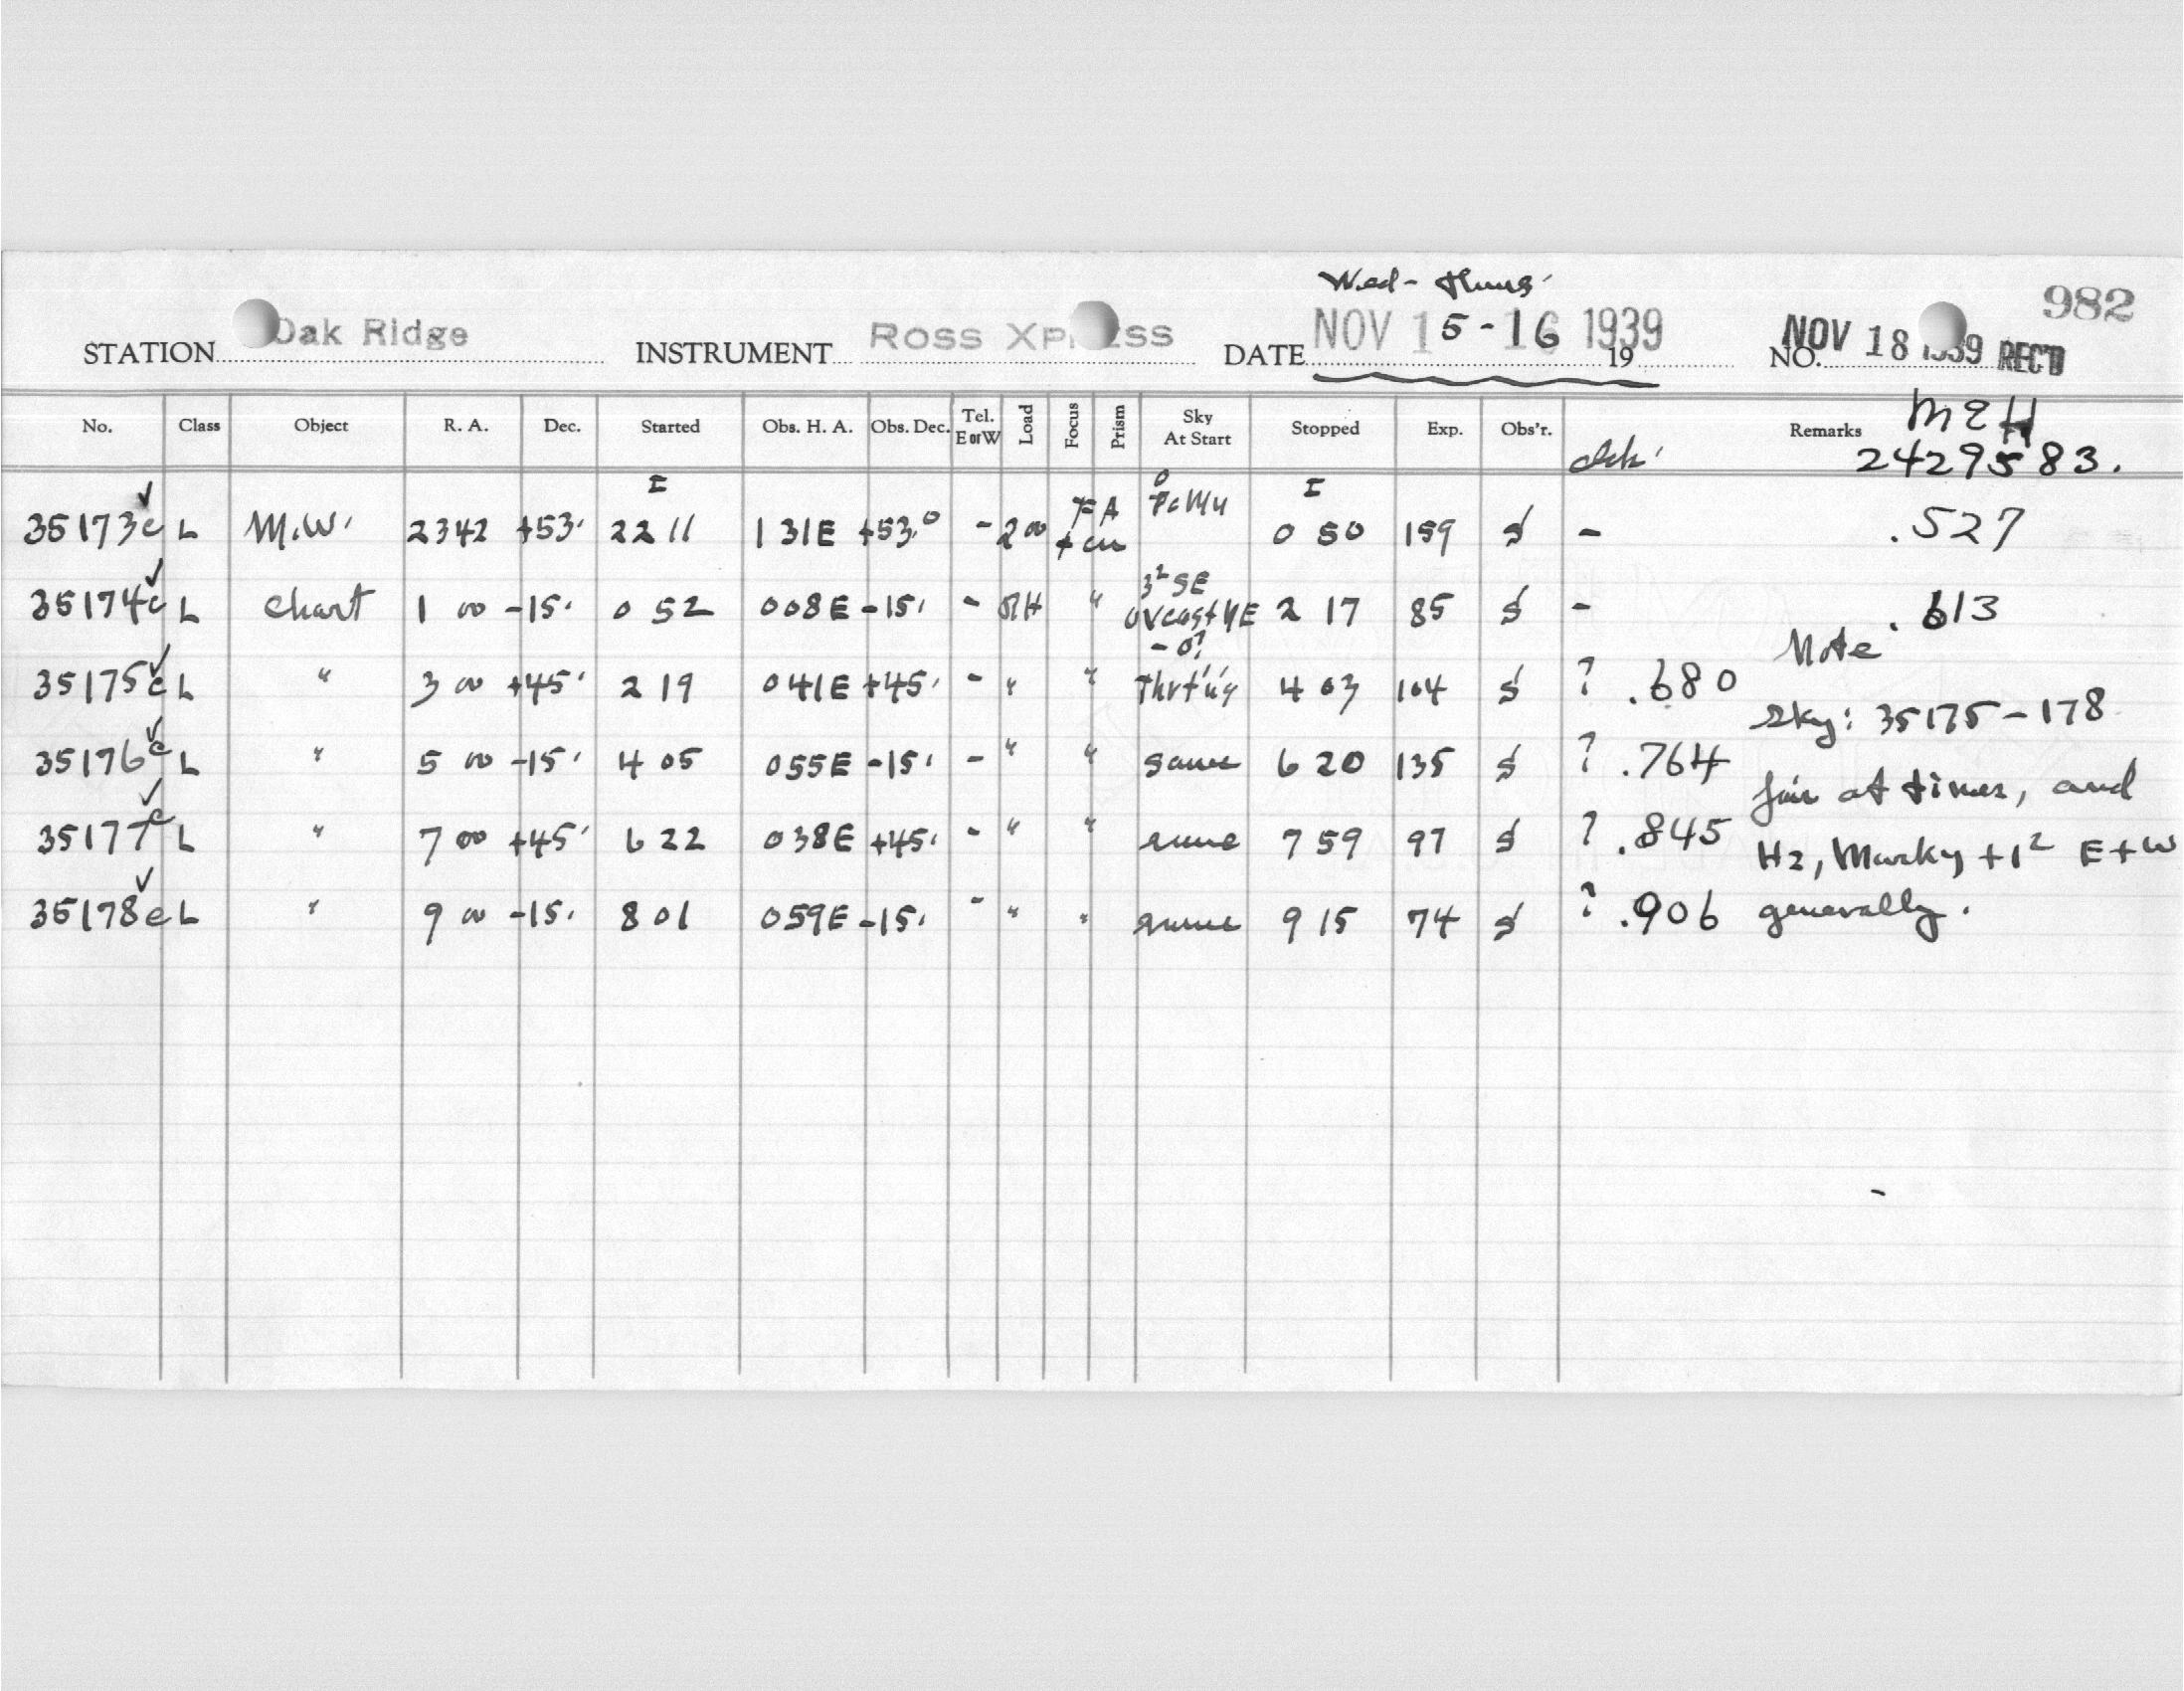 Wed - Thurs
982
STATION Oak Ridge INSTRUMENT Ross Xp ss DATE NOV 15-16 1939 19 NO. NOV 18 1939 REC'D
No. Class Object R. A. Dec. Started Obs. H. A. Obs. Dec. Tel. E or W Load Focus Prism Sky At Start Stopped Exp. Obs'r. Remarks
2429583.
35173c L M.W. 2342 +53. 22 11 131E +53.0 - 200 0 50 159 S - .527
35174c L Chart 1 00 -15. 0 52 008E -15. - RH " 3² SE ovcast NE 2 17 85 S - .613
35175c L " 3 00 +45. 2 19 041E +45. - " " 4 03 104 S ? .680
35176c L " 5 00 -15. 4 05 055E -15. - " " same 6 20 135 S ? .764
35177c L " 7 00 +45. 6 22 038E +45. - " " same 7 59 97 S ? .845
35178c L " 9 00 -15. 8 01 059E -15. - " " same 9 15 74 S ? .906
Note
Sky: 35175-178
fair at times, and
Hz, Murky +1² E+W
generally.